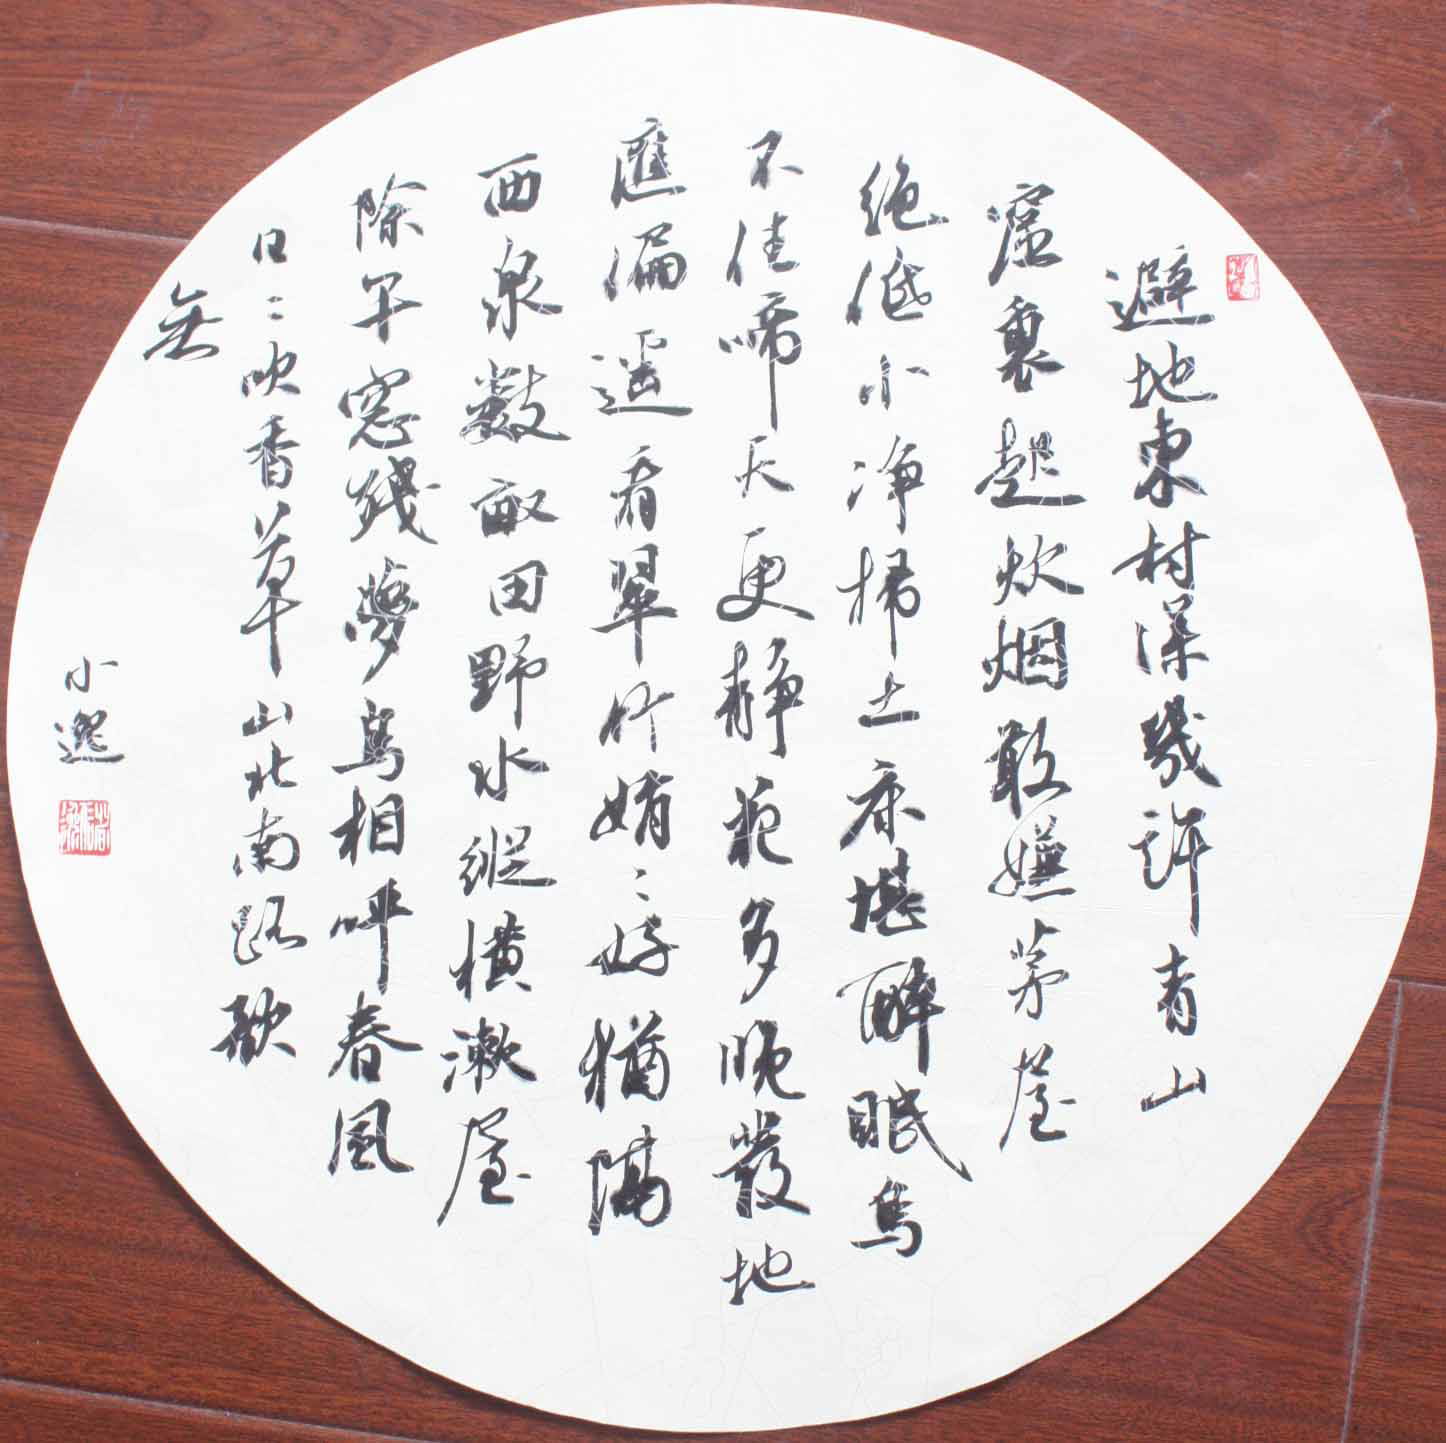 避地東村深幾許青山
窟裏起炊烟敢嫌茅屋
絶低小净掃土床堪醉眠鳥
不住啼天更静花多晚發地
匯偏遥看翠竹娟〻好猶隔
西泉數畝田野水縱横漱屋
除午窓殘夢鳥相呼春風
日〻吹香草山北南路欲
無
小逸